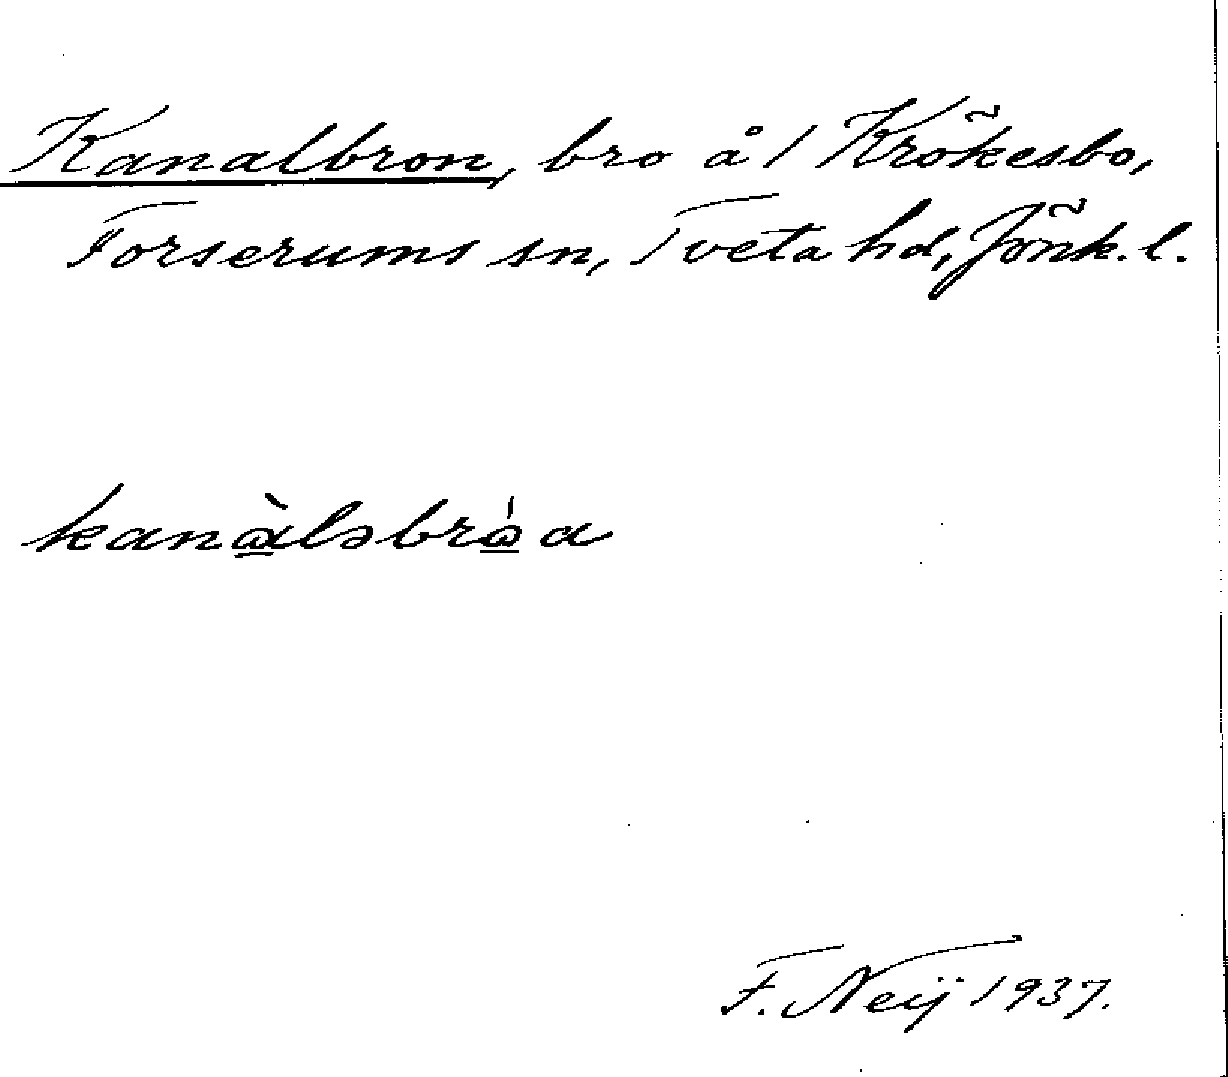 Kanalbron, bro å 1 Krökesbo,
Forserums sn, Tveta hd, Jönk. l.
F. Neij 1937.